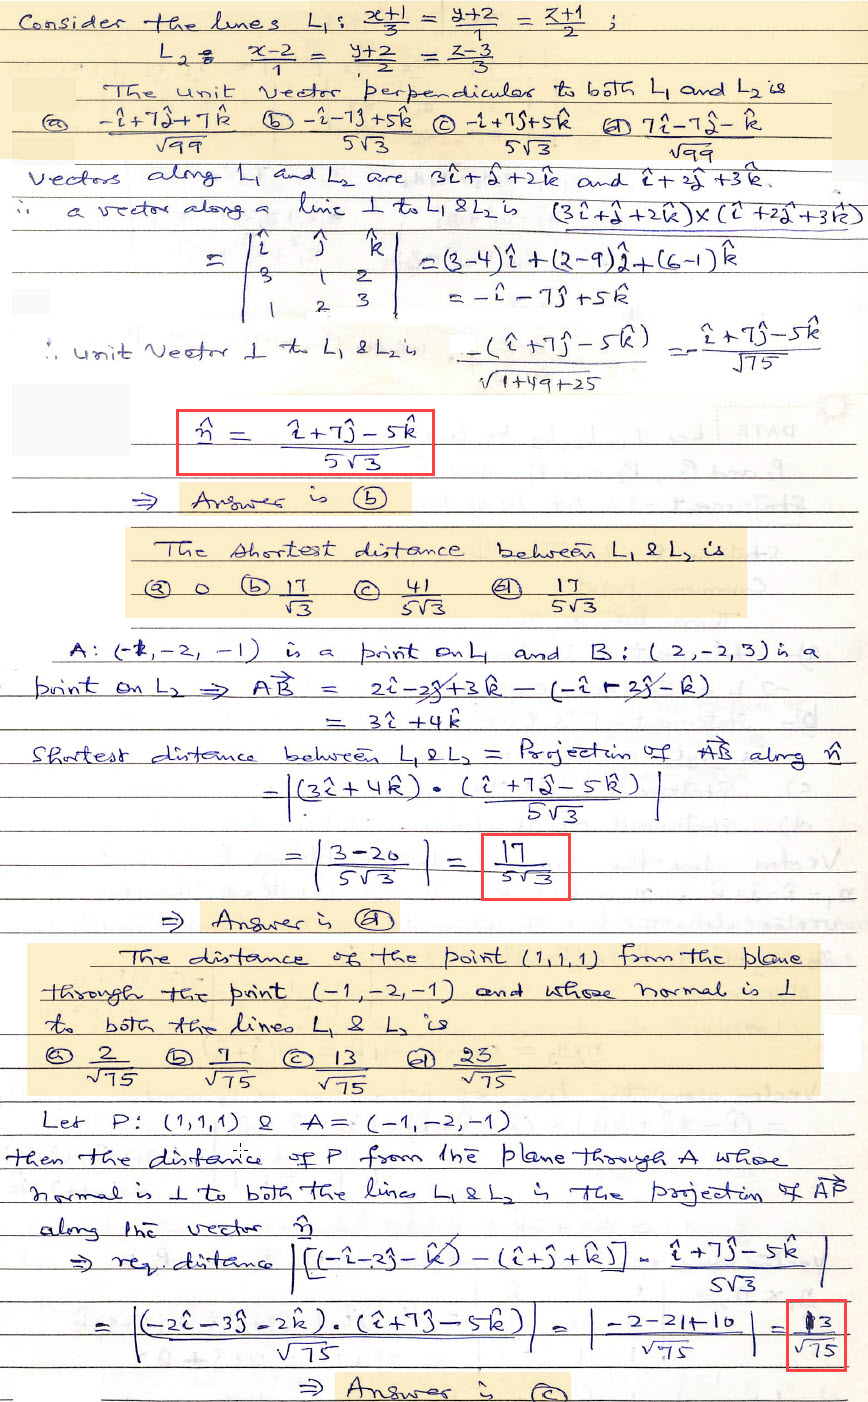 Consider the lines L₁ : (x+1)/3 = (y+2)/1 = (z+1)/2 ;
L₂ : (x-2)/1 = (y+2)/2 = (z-3)/3
The unit vector perpendicular to both L₁ and L₂ is
(a) (-î+7ĵ+7k̂)/√99 (b) (-î-7ĵ+5k̂)/5√3 (c) (-î+7ĵ+5k̂)/5√3 (d) (7î-7ĵ-k̂)/√99
Vectors along L₁ and L₂ are 3î+ĵ+2k̂ and î+2ĵ+3k̂.
∴ a vector along a line ⊥ to L₁ & L₂ is (3î+ĵ+2k̂)×(î+2ĵ+3k̂)
= | î ĵ k̂ |
| 3 1 2 |
| 1 2 3 | = (3-4)î+(2-9)ĵ+(6-1)k̂
= -î-7ĵ+5k̂
∴ unit vector ⊥ to L₁ & L₂ is -(î+7ĵ-5k̂)/√(1+49+25) = -(î+7ĵ-5k̂)/√75
n̂ = (î+7ĵ-5k̂)/5√3
⇒ Answer is (b)
The shortest distance between L₁ & L₂ is
(a) 0 (b) 17/√3 (c) 41/5√3 (d) 17/5√3
A: (-1, -2, -1) is a point on L₁ and B: (2, -2, 3) is a
point on L₂ ⇒ AB⃗ = 2î-2ĵ+3k̂ - (-î-2ĵ-k̂)
= 3î+4k̂
Shortest distance between L₁ & L₂ = Projection of AB⃗ along n̂
= |(3î+4k̂) · (î+7ĵ-5k̂)/5√3|
= |(3-20)/5√3| = 17/5√3
⇒ Answer is (d)
The distance of the point (1,1,1) from the plane
through the point (-1,-2,-1) and whose normal is ⊥
to both the lines L₁ & L₂ is
(a) 2/√75 (b) 7/√75 (c) 13/√75 (d) 23/√75
Let P: (1,1,1) & A = (-1,-2,-1)
then the distance of P from the plane through A whose
normal is ⊥ to both the lines L₁ & L₂ is the projection of AP⃗
along the vector n̂
⇒ req. distance |[(-î-2ĵ-k̂) - (î+ĵ+k̂)] · (î+7ĵ-5k̂)/5√3|
= |(-2î-3ĵ-2k̂)·(î+7ĵ-5k̂)/√75| = |(-2-21+10)/√75| = 13/√75
⇒ Answer is (c)